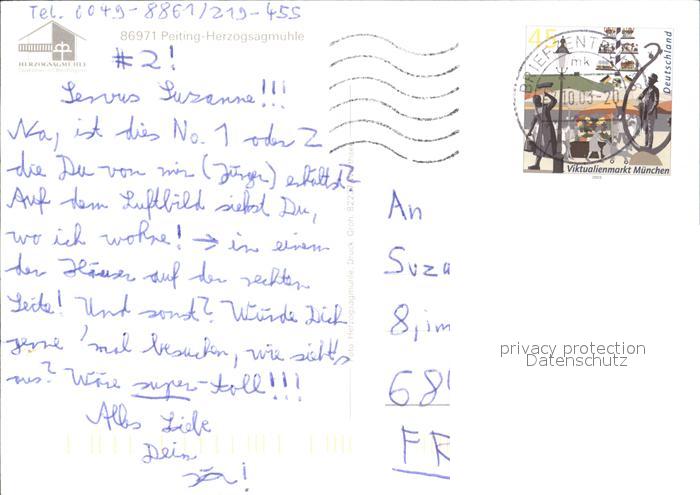 Tel. 0049-8861/219-455
HERZOGSAGMÜHLE
86971 Peiting-Herzogsagmühle
#2!
Servus Suzanne!!!
Na, ist dies No. 1 oder 2
die Du von mir (Jürgen) erhältst?
Auf dem Luftbild siehst Du,
wo ich wohne! → in einem
der Häuser auf der rechten
Seite! Und sonst? Würde Dich
gerne 'mal besuchen, wie sieht's
aus? Wäre super-toll!!!
Alles Liebe
Dein
45
Deutschland
BRIEFZENTR
mk
.10.03-2
Viktualienmarkt München
2003
An
Suza
8, im
68
FR
privacy protection
Datenschutz